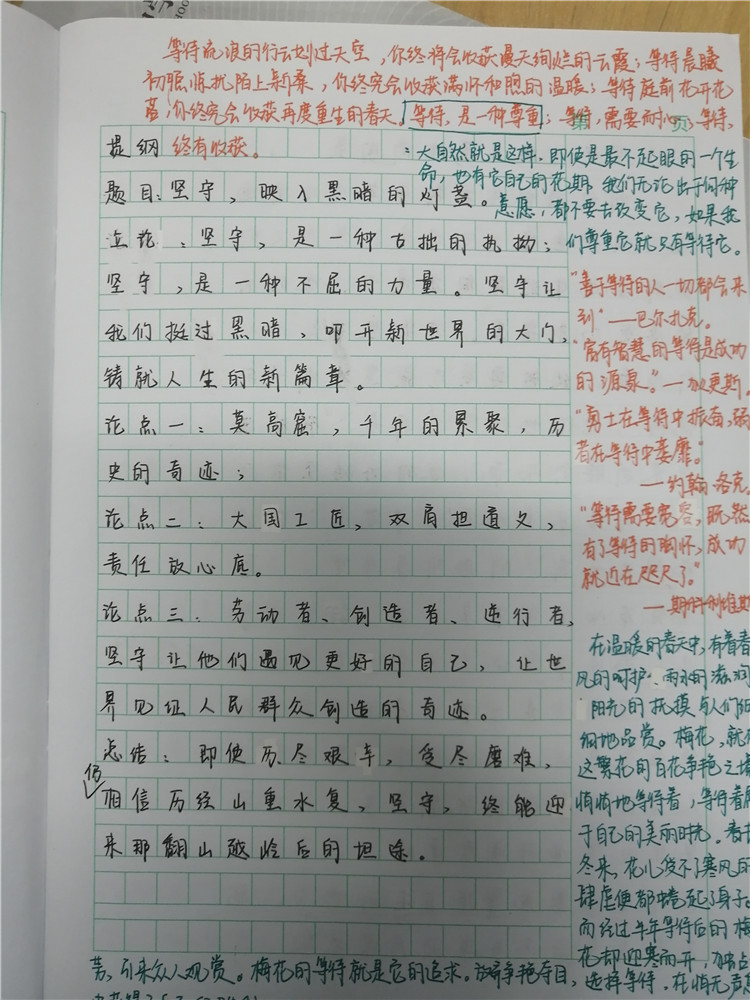 等待流浪的行云划过天空，你终将会收获漫天绚烂的云霞；等待晨曦
初照 陌上新桑，你终究会收获满怀和煦的温暖；等待庭前花开花
落，你终究会收获再度重生的春天。等待，是一种尊重；等待，需要耐心；等待，
页
提纲 终有收获。
：大自然就是这样，即使是最不起眼的一个生
命，也有它自己的花期，我们无论出于何种
意愿，都不要去改变它，如果我
们尊重它就只有等待它。
题目：坚守，映入黑暗的灯盏。
立论：坚守，是一种古拙的执拗；
坚守，是一种不屈的力量。坚守让
我们挺过黑暗，叩开新世界的大门，
铸就人生的新篇章。
论点一：莫高窟，千年的累聚，历
史的奇迹；
论点二：大国工匠，双肩担道义，
责任放心底。
论点三：劳动者、创造者、逆行者，
坚守让他们遇见更好的自己，让世
界见证人民群众创造的奇迹。
总结：即使历尽艰辛，受尽磨难，
仍
相信历经山重水复，坚守，终能迎
来那翻山越岭后的坦途。
“善于等待的人一切都会来
到”——巴尔扎克。
“富有智慧的等待是成功
的源泉。”—狄更斯。
“勇士在等待中振奋，弱
者在等待中萎靡。”
——约翰·洛克。
“等待需要宽容，既然
有了等待的胸怀，成功
就近在咫尺了。”
在温暖的春天中，有着春
风的呵护、雨水的滋润
阳光的抚摸与人们细
细地品赏。梅花，就
这繁花的百花争艳之
悄悄地等待着，等待着属
于自己的美丽时光。春去
冬来，花儿受不了寒风的
肆虐便都蜷起了身子。
而经过半年等待后的梅
花却迎寒而开，
芳，引来众人观赏。梅花的等待就是它的追求。放弃争艳夺目，选择等待，在悄无声